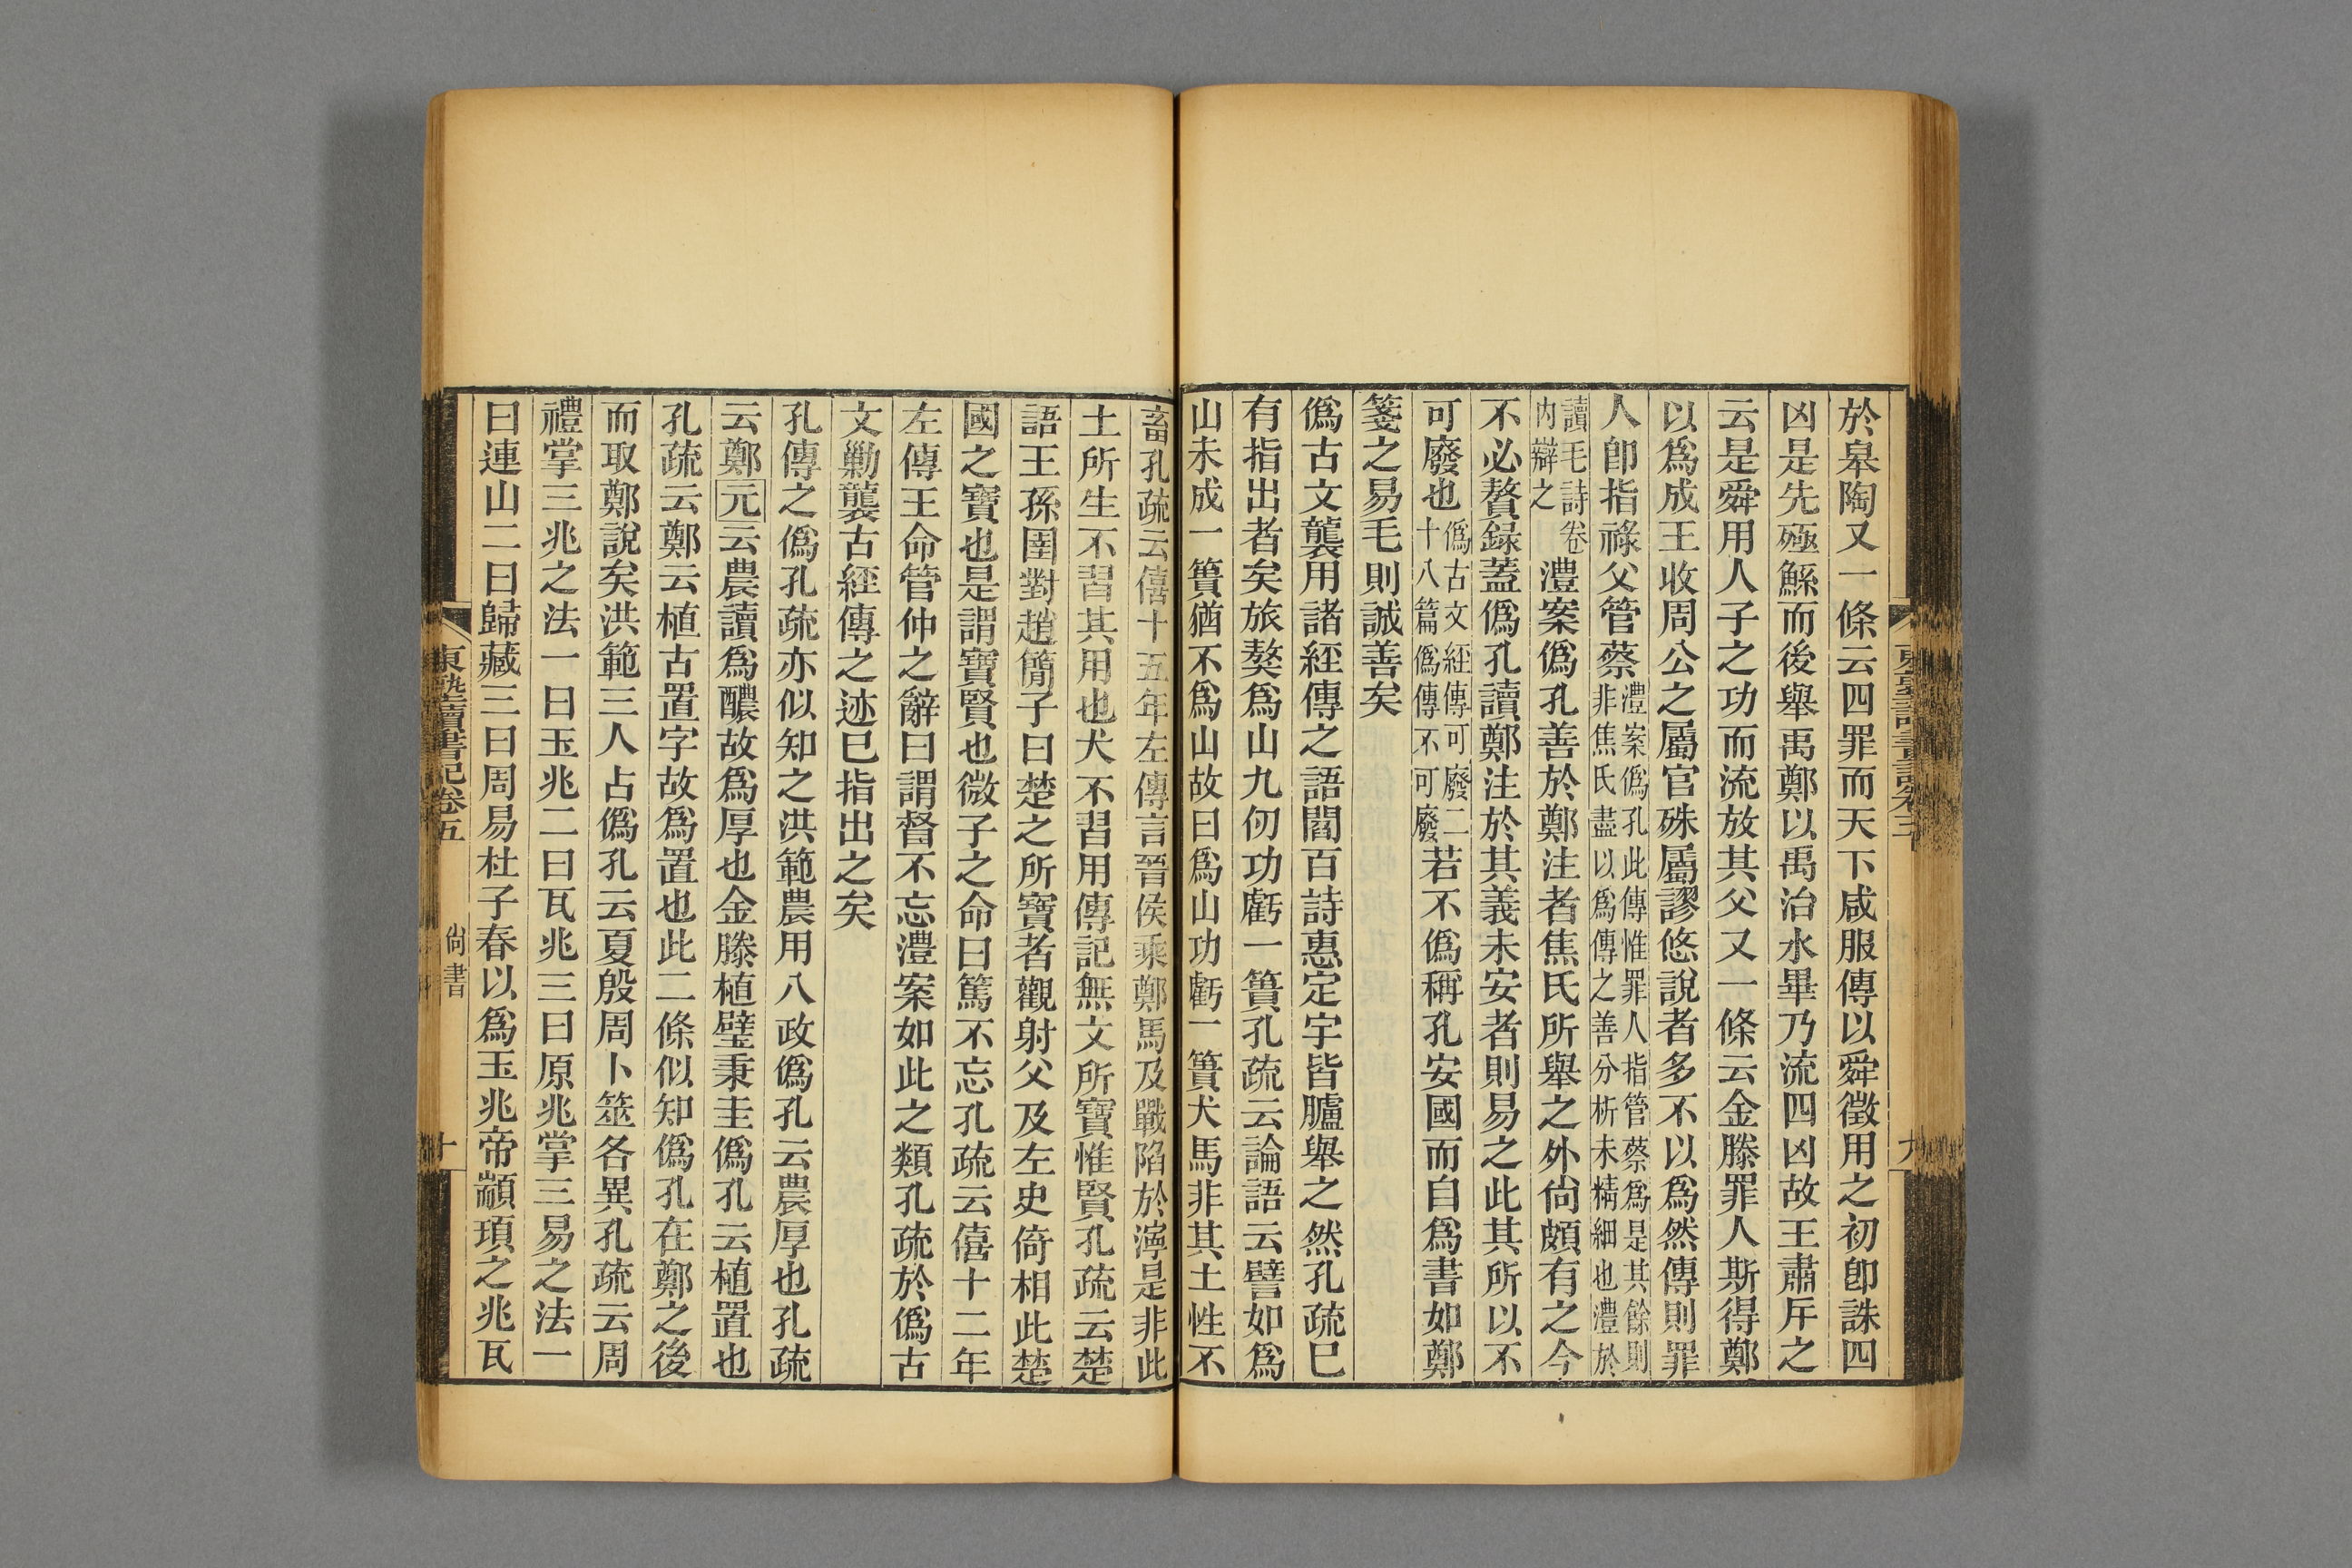 於皋陶又一條云四罪而天下咸服傳以舜徵用之初卽誅四
凶是先殛鯀而後舉禹鄭以禹治水畢乃流四凶故王肅斥之
云是舜用人子之功而流放其父又一條云金縢罪人斯得鄭
以爲成王收周公之屬官殊屬謬悠說者多不以爲然傳則罪
人卽指祿父管蔡澧案僞孔此傳惟罪人指管蔡爲是其餘則
非焦氏盡以爲傳之善分析未精細也澧於
讀毛詩卷
內辯之
澧案僞孔善於鄭注者焦氏所舉之外尙頗有之今
不必贅録蓋僞孔讀鄭注於其義未安者則易之此其所以不
可廢也僞古文經傳可廢二
十八篇僞傳不可廢若不僞稱孔安國而自爲書如鄭
箋之易毛則誠善矣
僞古文襲用諸經傳之語閻百詩惠定宇皆臚舉之然孔疏巳
有指出者矣旅獒爲山九仞功虧一簣孔疏云論語云譬如爲
山未成一簣猶不爲山故曰爲山功虧一簣犬馬非其土性不
畜孔疏云僖十五年左傳言晉侯乘鄭馬及戰陷於濘是非此
土所生不習其用也犬不習用傳記無文所寶惟賢孔疏云楚
語王孫圉對趙簡子曰楚之所寶者觀射父及左史倚相此楚
國之寶也是謂寶賢也微子之命曰篤不忘孔疏云僖十二年
左傳王命管仲之辭曰謂督不忘澧案如此之類孔疏於僞古
文勦襲古經傳之迹巳指出之矣
孔傳之僞孔疏亦似知之洪範農用八政僞孔云農厚也孔疏
云鄭元云農讀爲醲故爲厚也金縢植璧秉圭僞孔云植置也
孔疏云鄭云植古置字故爲置也此二條似知僞孔在鄭之後
而取鄭說矣洪範三人占僞孔云夏殷周卜筮各異孔疏云周
禮掌三兆之法一曰玉兆二曰瓦兆三曰原兆掌三易之法一
曰連山二曰歸藏三曰周易杜子春以爲玉兆帝顓頊之兆瓦
東塾讀書記卷五
尙書
十